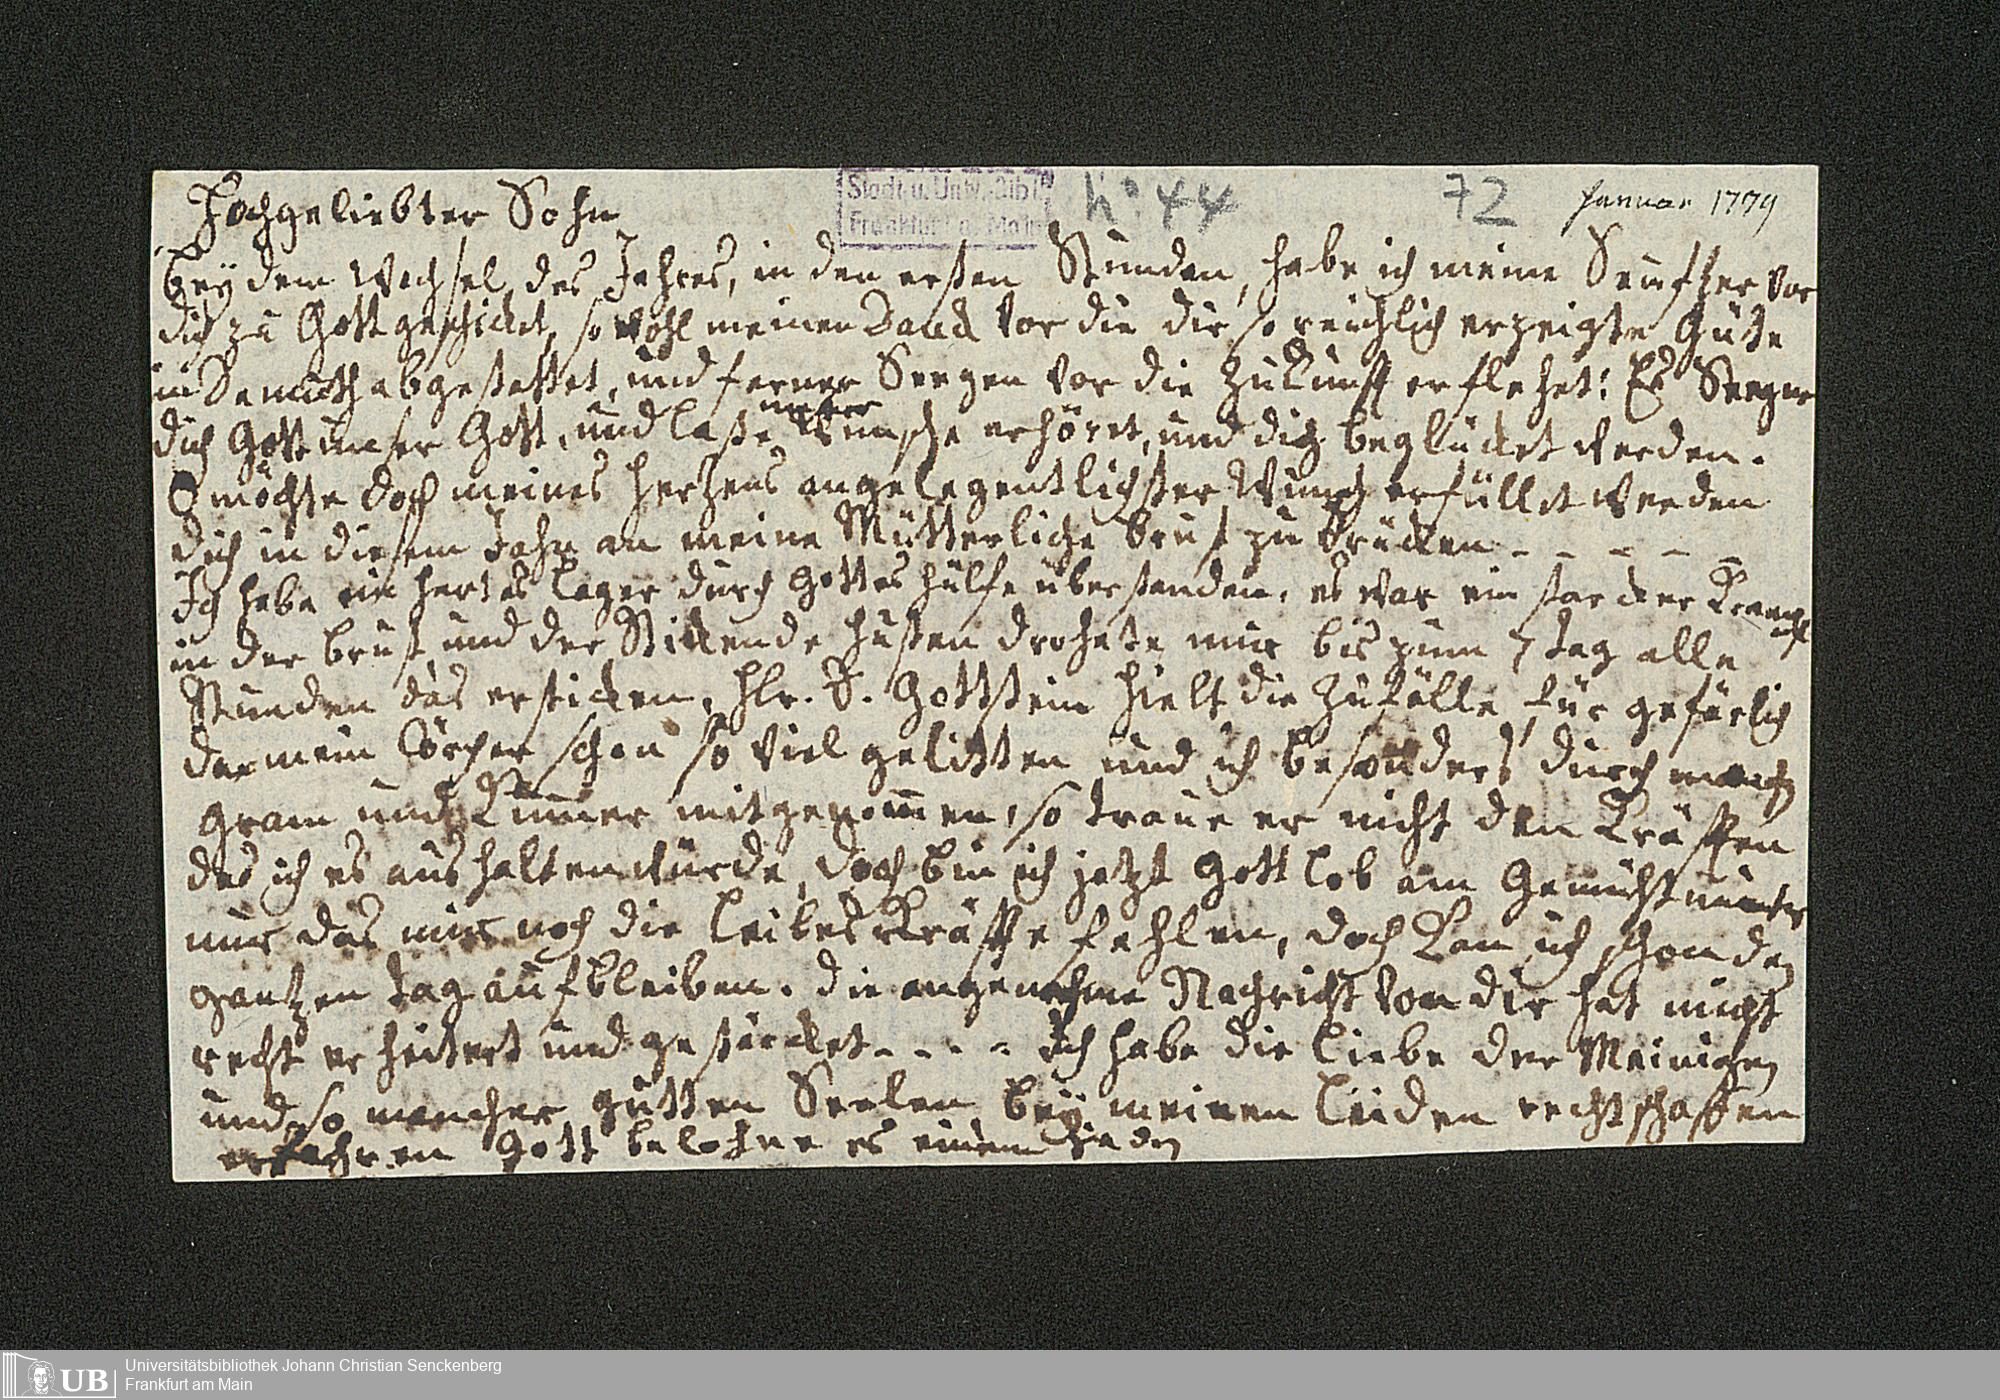 Hochgeliebter Sohn
Stadt u. Univ.-Bibl.
Frankfurt a. Main
No 44
72
Januar 1779
Bey dem Wechsel des Jahres, in den ersten Stunden, habe ich meine Seuftzer vor
dich zu Gott geschickt, so wohl meinen Danck vor die dir so reichlich erzeigte Güte
in Demuth abgestattet, und ferner Seegen vor die Zukunfft erflehet: Es Seegne
dich Gott unser Gott, und laße unsere Wünsche erhöret, und dich beglücket werden.
O möchte doch meines Hertzens angelegentlichster Wunsch erfüllet werden
dich in diesem Jahr an meine Mütterliche Brust zu drücken - - - - -
Ich habe ein hartes Lager durch Gottes hülfe überstanden, es war ein starcker Krampf
in der Brust und der Stickende Husten drohete mir bis zum 7 tag alle
Stunden das ersticken, Hr. D. Gottstein hielt die Zufälle für gefärlich
da mein Cörper schon so viel gelitten und ich besonders durch
gram und Kummer mitgenommen, so traue er nicht den Kräfften
das ich es aushalten würde, doch bin ich jetzt Gott lob am Gemüht munter
nur das mir noch die Leibes Kräffte fehlen, doch kan ich schon den
gantzen tag aufbleiben. die angenehme Nachricht von dir hat mich
recht erheitert und gestärcket - - - - ich habe die Liebe der Meinigen
und so mancher gutten Seelen bey meinen Leiden rechtschaffen
erfahren Gott belohne es einem Jeden
UB
Universitätsbibliothek Johann Christian Senckenberg
Frankfurt am Main